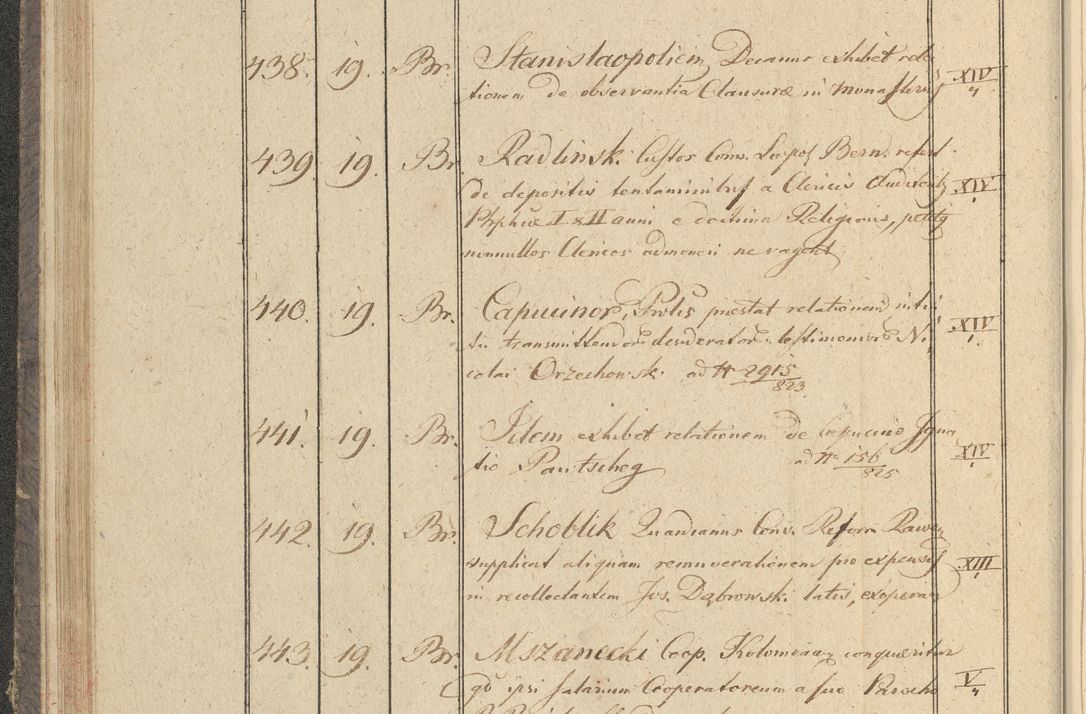 438. 19. Br. Stanislaopoliens Decanus exhibet rela
tionem de observantia Clausuræ in Monasteriis XIV/4
439 19. Br. Radlinski Custos Conv. Leopol Bern. refert
de depositis tentaminibus a Clericis XIV
I & II anni e doctrina Religionis, petitq
nonnullos Clericos admoneri ne vagent
440. 19. Br. Capucinor, Prolis præstat relationem
transmittendor desiderator testimonior Ni XIV/1
colai Orzechowski ad N 2915/823
441. 19. Br. Idem exhibet relationem de Capucino Igna
tio Pantscheg ad N 156/825 XIV/1
442. 19. Br. Schoblik Quardianus Conv. Reform Rawen
supplicat aliquam remunerationem pro expensis XIII
in recollectantem Jos. Dąbrowski latis, exoperari
443. 19. Br. Mszanecki Coop. Kolomeae conqueritur
qd ipsi salarium Cooperatoreum a suo Parocho V/4